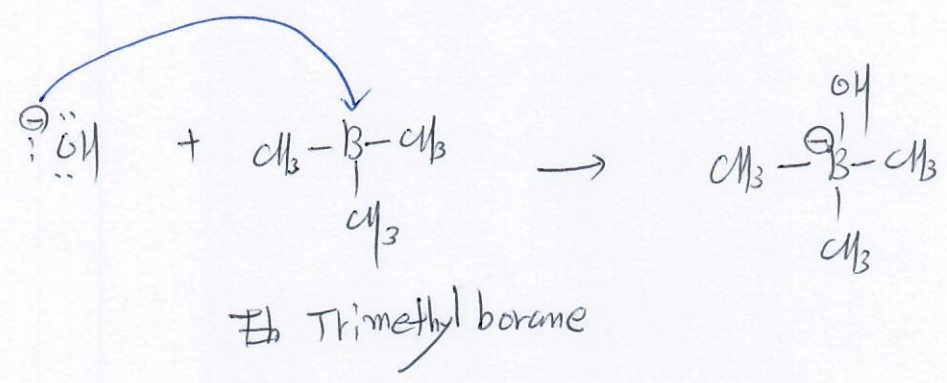 OH
⊖:ÖH + CH3-B-CH3 → CH3-⊖B-CH3
CH3 CH3
Trimethyl borane